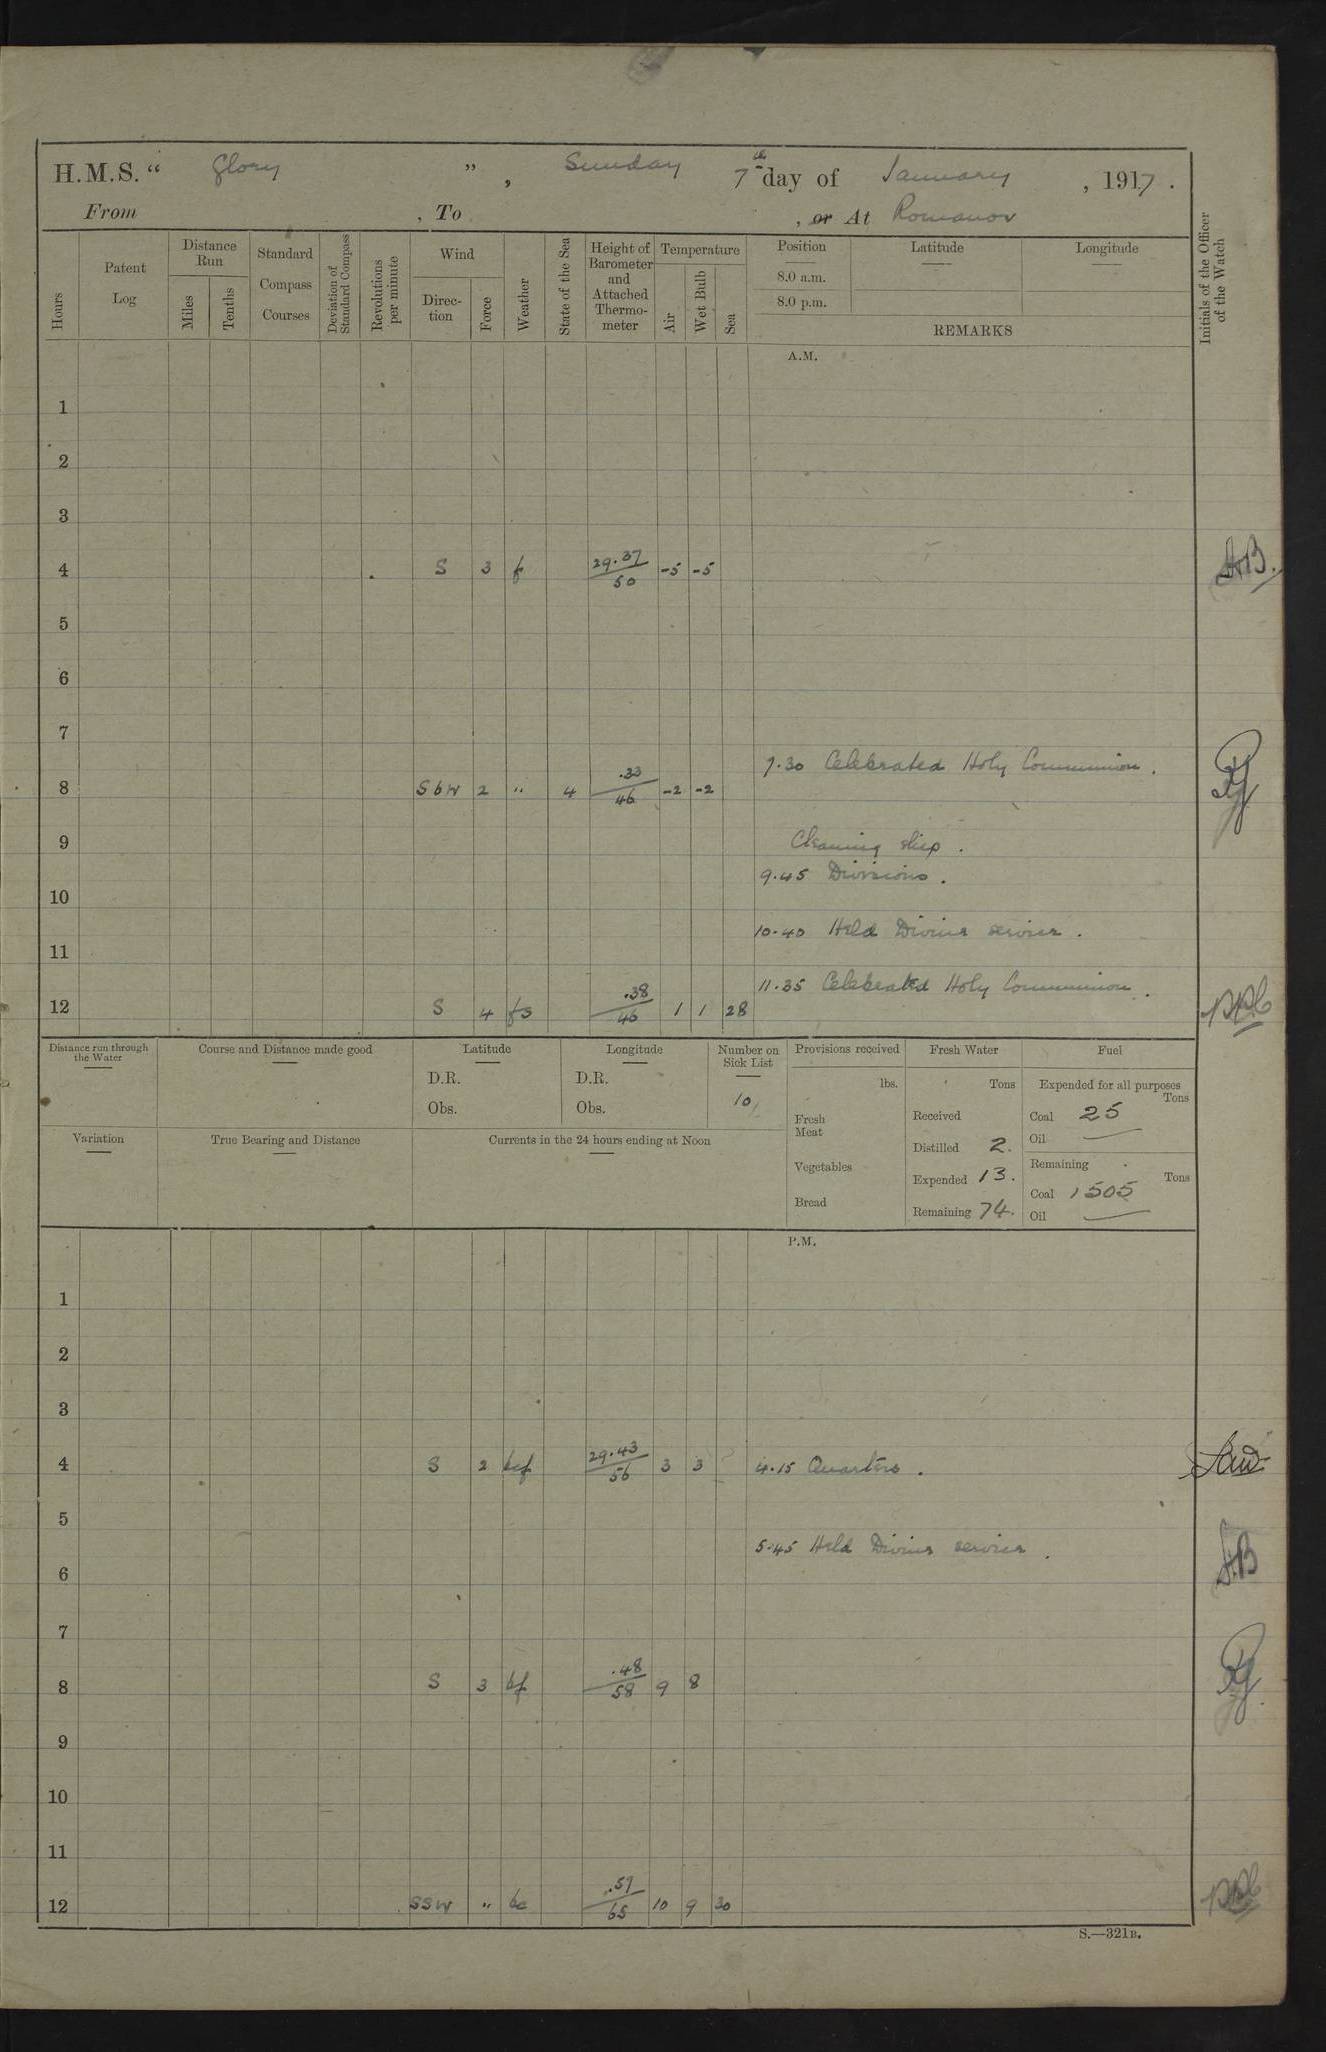 H.M.S. “ Glory ” , Sunday 7th day of January , 1917 .
From , To , or At Romanov
Hours
Patent Log
Distance Run
Miles
Tenths
Standard Compass Courses
Deviation of Standard Compass
Revolutions per minute
Wind
Direc- tion
Force
Weather
State of the Sea
Height of Barometer and Attached Thermo- meter
Temperature
Air
Wet Bulb
Sea
Position
8.0 a.m.
8.0 p.m.
Latitude
Longitude
REMARKS
Initials of the Officer of the Watch
A.M.
1
2
3
4 S 3 f 29.37 50 -5 -5
5
6
7
7.30 Celebrated Holy Communion .
8 SbW 2 " 4 .33 46 -2 -2
9 Cleaning ship .
9.45 Divisions .
10
10.40 Held Divine service .
11
11.35 Celebrated Holy Communion .
12 S 4 fs .38 46 1 1 28
Distance run through the Water
Course and Distance made good
Latitude
D.R.
Obs.
Longitude
D.R.
Obs.
Number on Sick List
10
Variation
True Bearing and Distance
Currents in the 24 hours ending at Noon
Provisions received
lbs.
Fresh Meat
Vegetables
Bread
Fresh Water
Tons
Received
Distilled 2.
Expended 13.
Remaining 74.
Fuel
Expended for all purposes
Tons
Coal 25
Oil —
Remaining
Tons
Coal 1505
Oil —
P.M.
1
2
3
4 S 2 bcf 29.43 56 3 3 4.15 Quarters .
5
5.45 Held Divine service .
6
7
8 S 3 bf .48 58 9 8
9
10
11
12 SSW " bc .57 65 10 9 30
S.—321B.